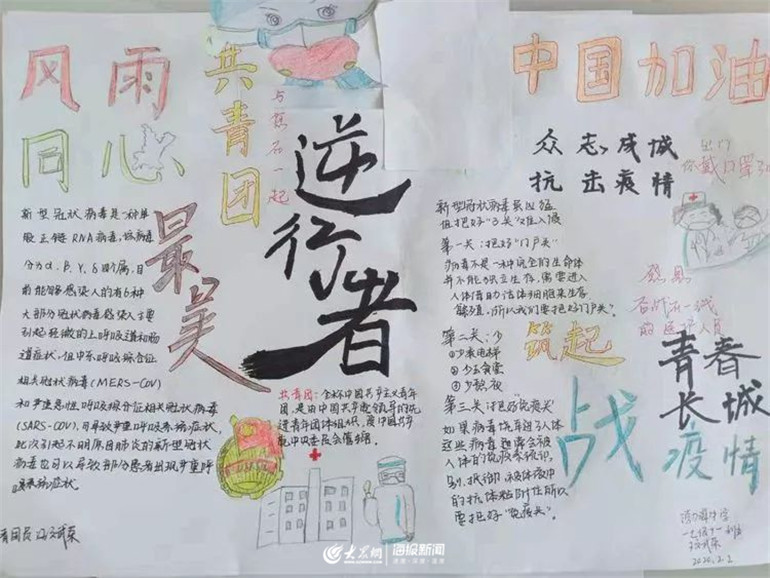 风雨
同心
共青团
与您在一起
最美
逆行者
中国加油
众志成城
抗击疫情
出门
你戴口罩了
新型冠状病毒是一种单
股正链RNA病毒,
分为α、β、γ、δ四个属,目
前能够感染人的有6种
大部分冠状病毒感染人主要
引起轻微的上呼吸道和肠
道症状,但中东呼吸综合征
相关冠状病毒(MERS-COV)
和严重急性呼吸综合征相关冠状病毒
(SARS-COV),可导致严重呼吸系统症状,
此次引起不明原因肺炎的新型冠状
病毒也可以导致部分患者出现严重呼
吸系统症状。
共青团:全称中国共产主义青年
团,是由中国共产党领导的先
进青年团体组织,
新型冠状病毒虽凶猛
但把好“3关”难入侵
第一关:把好“门户关”
病毒不是一种完全的生命体
并不能独立生存,需要进入
人体借助活体细胞来生存
繁殖,所以我们要把好门户关。
第二关:少
①少乘电梯
②少去食堂
③少熬夜
第三关:把好“免疫关”
如果病毒侥幸进了人体
这些病毒通常会被
人体的免疫系统识
别,抵御,
的抗体粘附住所以
要把好“免疫关”。
致敬
奋战在一线
的医护人员
筑起
青春
长城
战疫情
2020.2.2
大众网 海报新闻